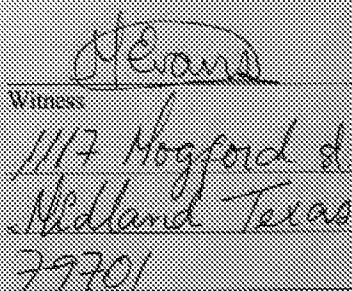 M Evans
Witness
1117 Mogford st
Midland Texas
79701